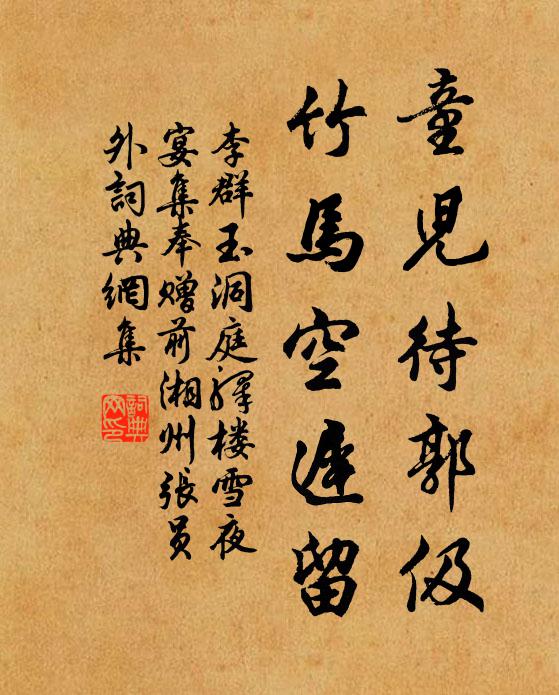 童兒待郭伋
竹馬空遲留
李群玉洞庭驛楼雪夜
宴集奉赠前湘州張员
外詞典網集
詞典
网印